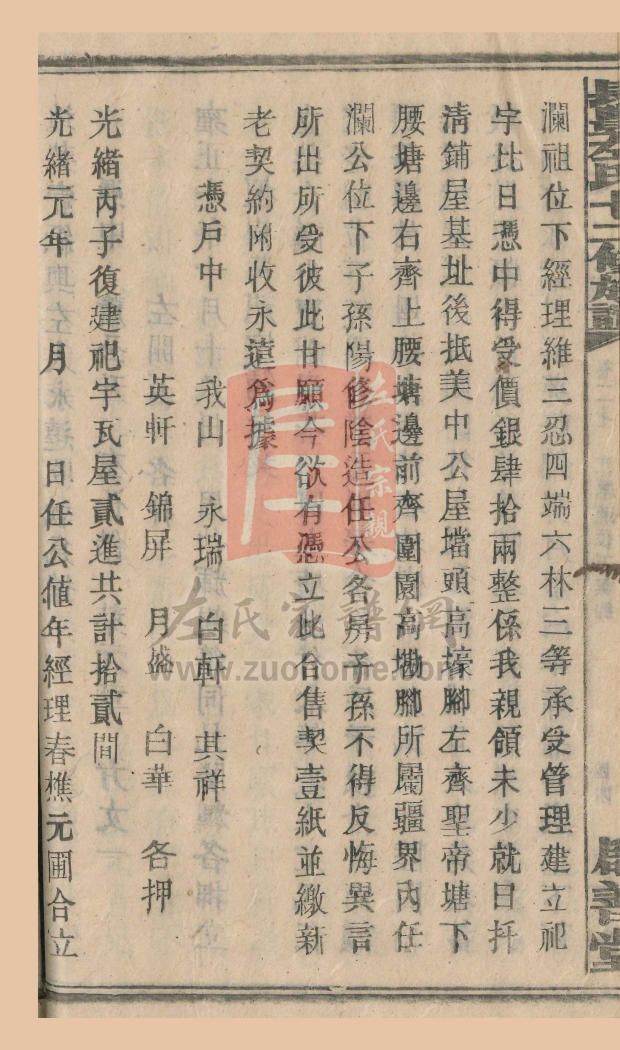 瀾祖位下經理維三忍四端六林三等承受管理建立祀
宇比日憑中得受價銀肆拾兩整係我親領未少就日扦
清鋪屋基址後抵美中公屋壋頭高壕腳左齊聖帝塘下
腰塘邊右齊上腰塘邊前齊圍園高墈腳所屬疆界內任
瀾公位下子孫陽修陰造任公各房子孫不得反悔異言
所出所受彼此甘願今欲有憑立此合售契壹紙並繳新
老契約附收永遠爲據
憑戶中 我山 永瑞 白軒 其祥
英軒 錦屏 月盛 白華 各押
光緒丙子復建祀宇瓦屋貳進共計拾貳間
光緒元年 月 日任公値年經理春樵元圃合立
左氏宗親
左氏宗譜網
www.zuohome.com